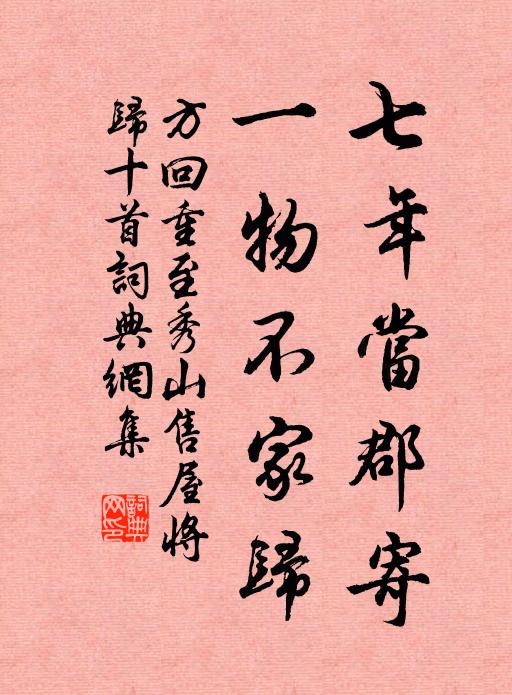 七年當郡寄
一物不家歸
方回重至秀山售屋將
歸十首詞典網集
詞典網印